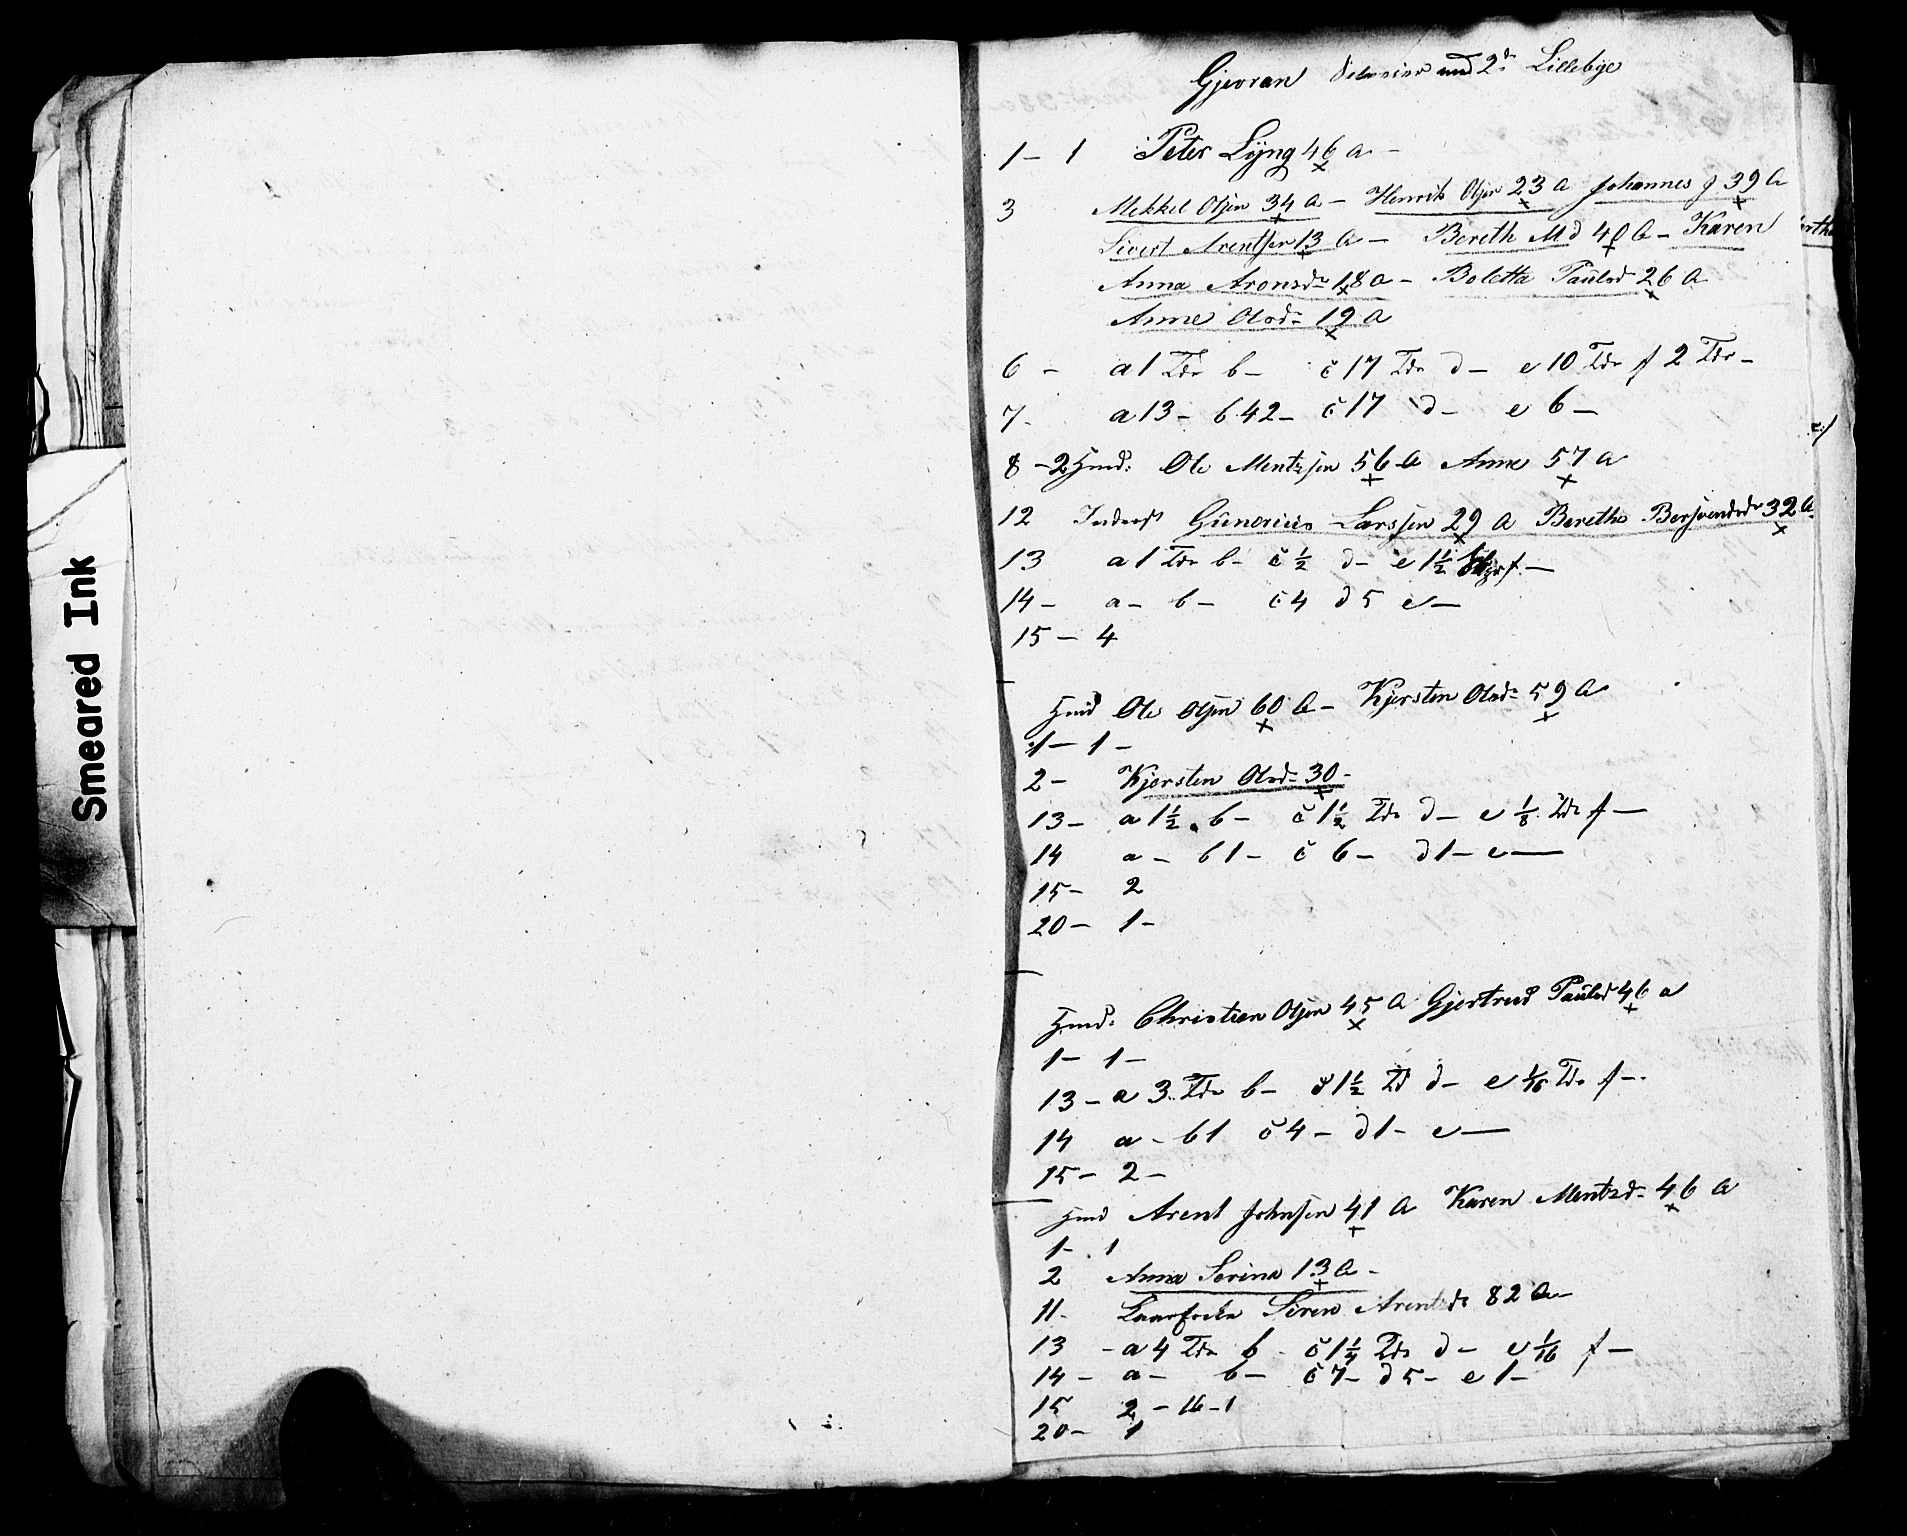 Smeared Ink
Gjevran med 2de Lillebye
1 - 1 Peter Lÿng 46 a -
3 Mekkel Olsen 34 a - Henrik Olsen 23 a Johannes J 39 a
Sivert Arentsen 13 a - Bereth M d 40 a - Karen
Anna Aronsdr 18 a - Boletta Paulsd 26 a
Anne Olsdr 19 a
6 - a 1 Tdr b - c 17 Tdr d - e 10 Tdr f 2 Tdr -
7 - a 13 - b 42 - c 17 d - e 6 -
8 - 2 Hmd: Ole Mentzsen 56 a Anne 57 a
12 Inderst Gunerius Larssen 29 a Berethe 32 a
13 a 1 Tdr b - c ½ d - e 1½ f -
14 - a - b - c 4 d 5 e -
15 - 4
Hmd Ole Olsen 60 a - Kjersten Olsdr 59 a
1 - 1 -
2 - Kjersten Olsdr 30 -
13 - a 1½ b - c 1½ Tdr d - e ⅛ Tdr f -
14 a - b 1 - c 6 - d 1 - e -
15 - 2
20 - 1 -
Hmd: Christian Olsen 45 a Gjertrud Paulsd 46 a
1 - 1 -
13 - a 3 Tdr b - c 1½ Td d - e 1/16 Tdr f -
14 a - b 1 c 4 - d 1 - e -
15 - 2 -
Hmd Arent Johnsen 41 a Karen Mentzdr 46 a
1 - 1
2 Anna Serina 13 a -
11 - Siren Arentsdr 82 a -
13 - a 4 Tdr b - c 1¼ Tdr d - e 1/16 f -
14 - a - b - c 7 - d 5 - e 1 -
15 2 - 16 - 1
20 - 1